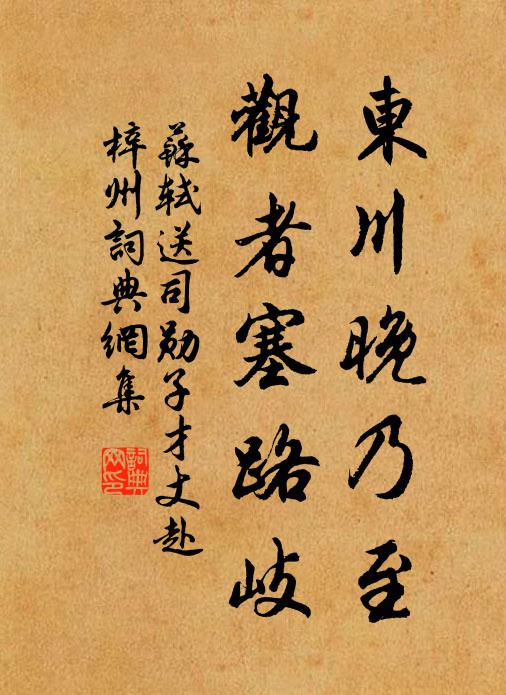 東川晚乃至
觀者塞路歧
蘇軾送司勛子才丈赴
梓州詞典網集
詞典
網印